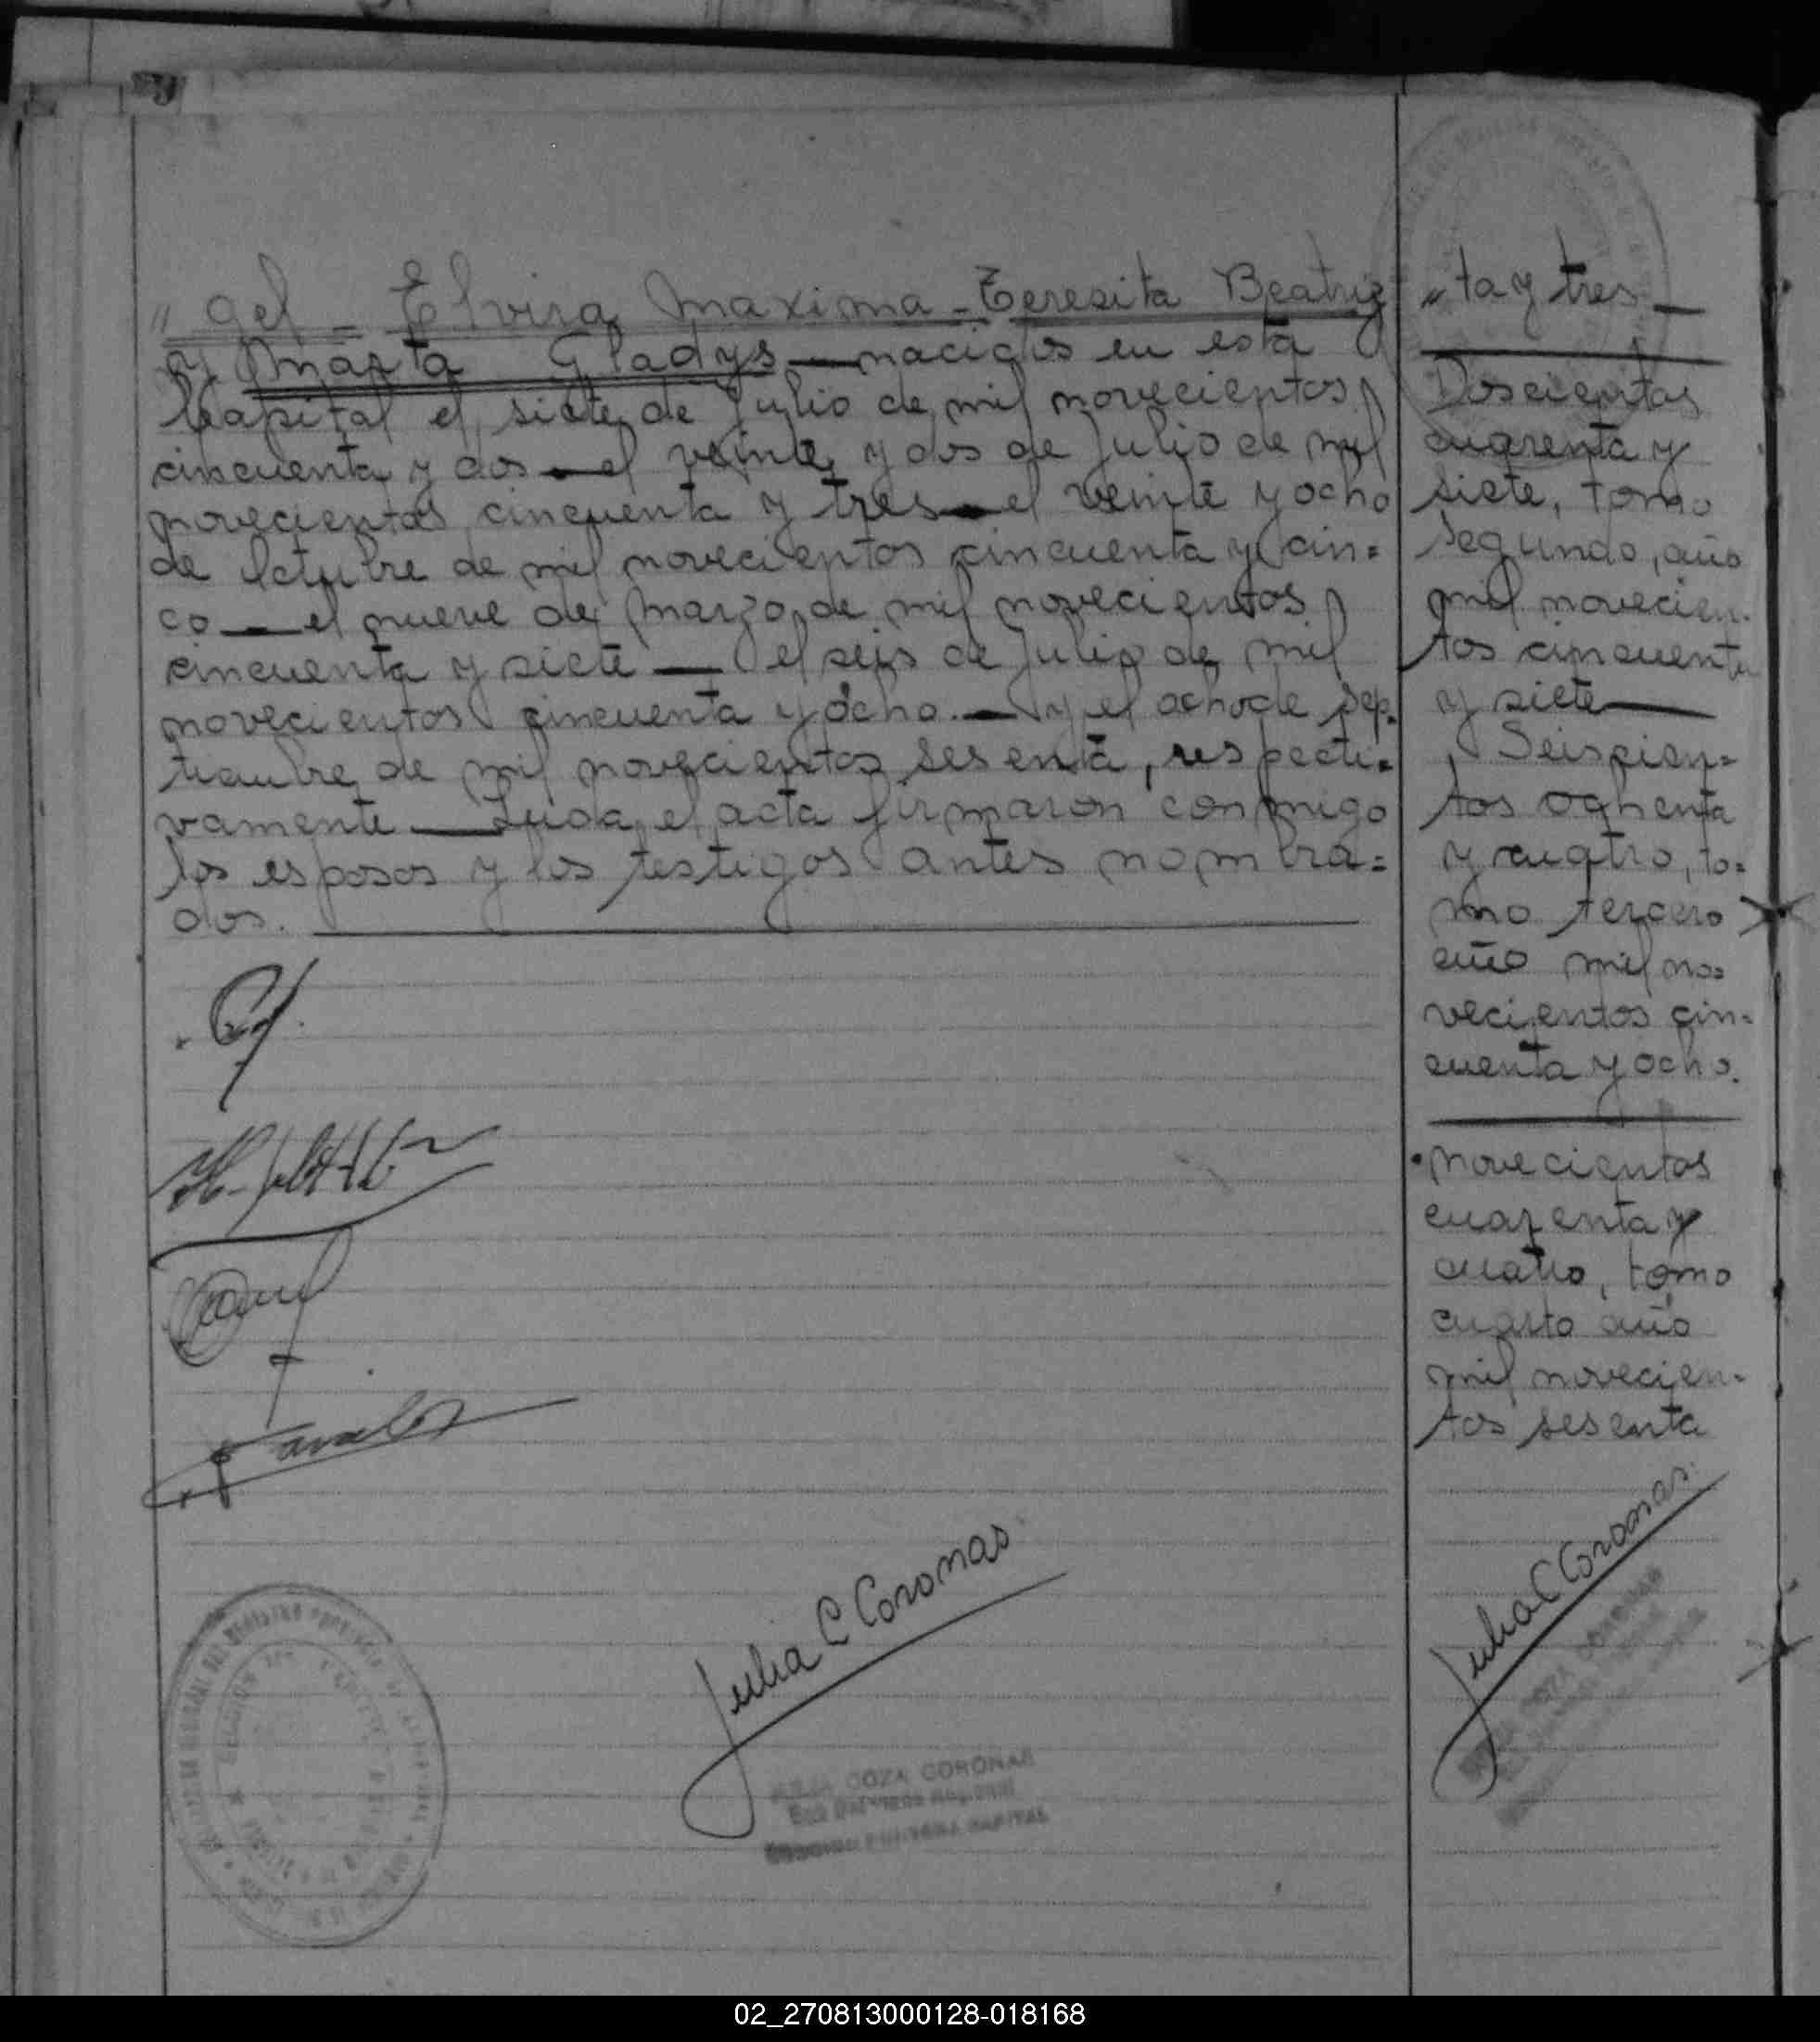 " gel - Elvira Maxima - Teresita Beatriz
y Marta Gladys — nacidos en esta
Capital el siete de Julio de mil novecientos
cincuenta y dos — el veinte y dos de Julio de mil
novecientos cincuenta y tres — el veinte y ocho
de Octubre de mil novecientos cincuenta y cin=
co — el nueve de Marzo de mil novecientos
cincuenta y siete — el seis de Julio de mil
novecientos cincuenta y ocho. — y el ocho de Sep-
tiembre de mil novecientos sesenta, respecti=
vamente — Leida el acta firmaron conmigo
los esposos y los testigos antes nombra=
dos.
Julia C Coronas
JULIA COZA CORONAS
" ta y tres —
Doscientos
cuarenta y
siete, tomo
segundo, año
mil novecien-
tos cincuenta
y siete —
Seiscien=
tos ochenta
y cuatro, to=
mo tercero
año mil no=
vecientos cin-
cuenta y ocho.
Novecientos
cuarenta y
cuatro, tomo
cuarto año
mil novecien-
tos sesenta
Julia C Coronas
02_270813000128-018168